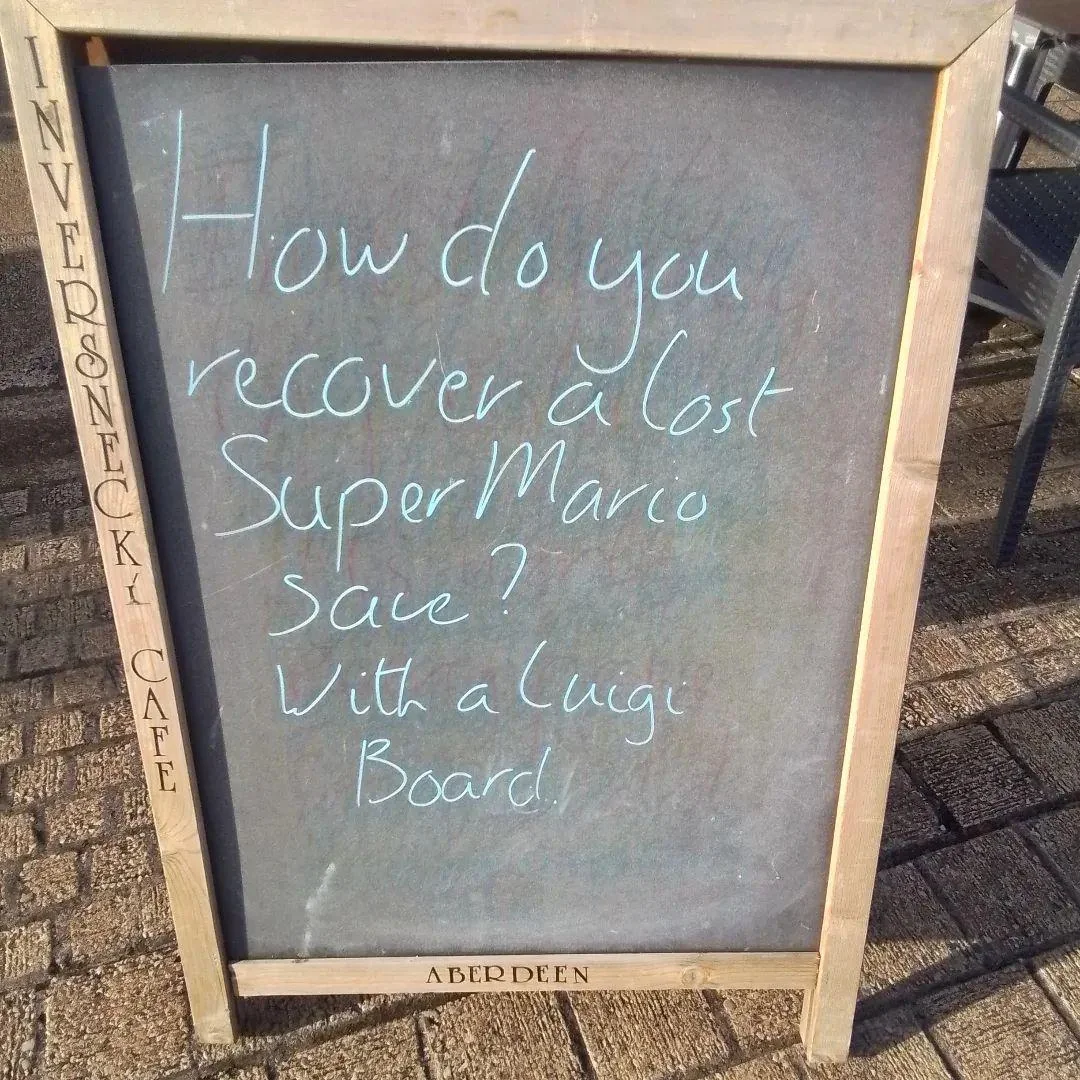 INVERSNECKI CAFE
How do you
recover a lost
Super Mario
save?
With a Luigi
Board.
ABERDEEN